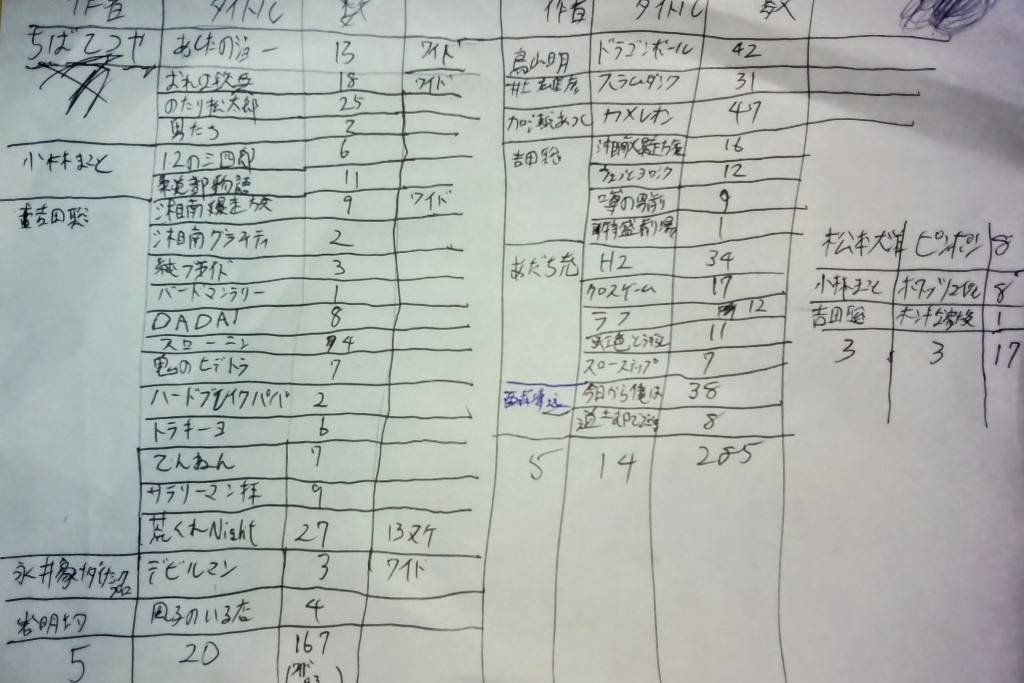 作者 タイトル 数
ちばてつや あしたのジョー 13 ワイド
おれは鉄兵 18 ワイド
のたり松太郎 25
男たち 2
小林まこと 1・2の三四郎 6
柔道部物語 11
吉田聡 湘南爆走族 9 ワイド
湘南グラフィティ 2
純ブライド 3
バードマンラリー 1
DADA! 8
スローニン 4
鬼のヒデトラ 7
ハードブレイクパパ 2
トラキーヨ 6
てんねん 7
サラリーマン拝 9
荒くれNight 27 13ヌケ
永井豪 デビルマン 3 ワイド
岩明均 風子のいる店 4
5 20 167
作者 タイトル 数
鳥山明 ドラゴンボール 42
井上雄彦 スラムダンク 31
加瀬あつし カメレオン 47
吉田聡 湘南爆走族 16
ちょっとヨロシク 12
噂の男前 9
特盛劇場 1
あだち充 H2 34
クロスゲーム 17
ラフ 12
虹色とうがらし 11
スローステップ 7
西森博之 今日から俺は 38
道士郎でござる 8
5 14 285
松本大洋 ピンポン 8
小林まこと ホワッツマイケル 8
吉田聡 1
3 3 17